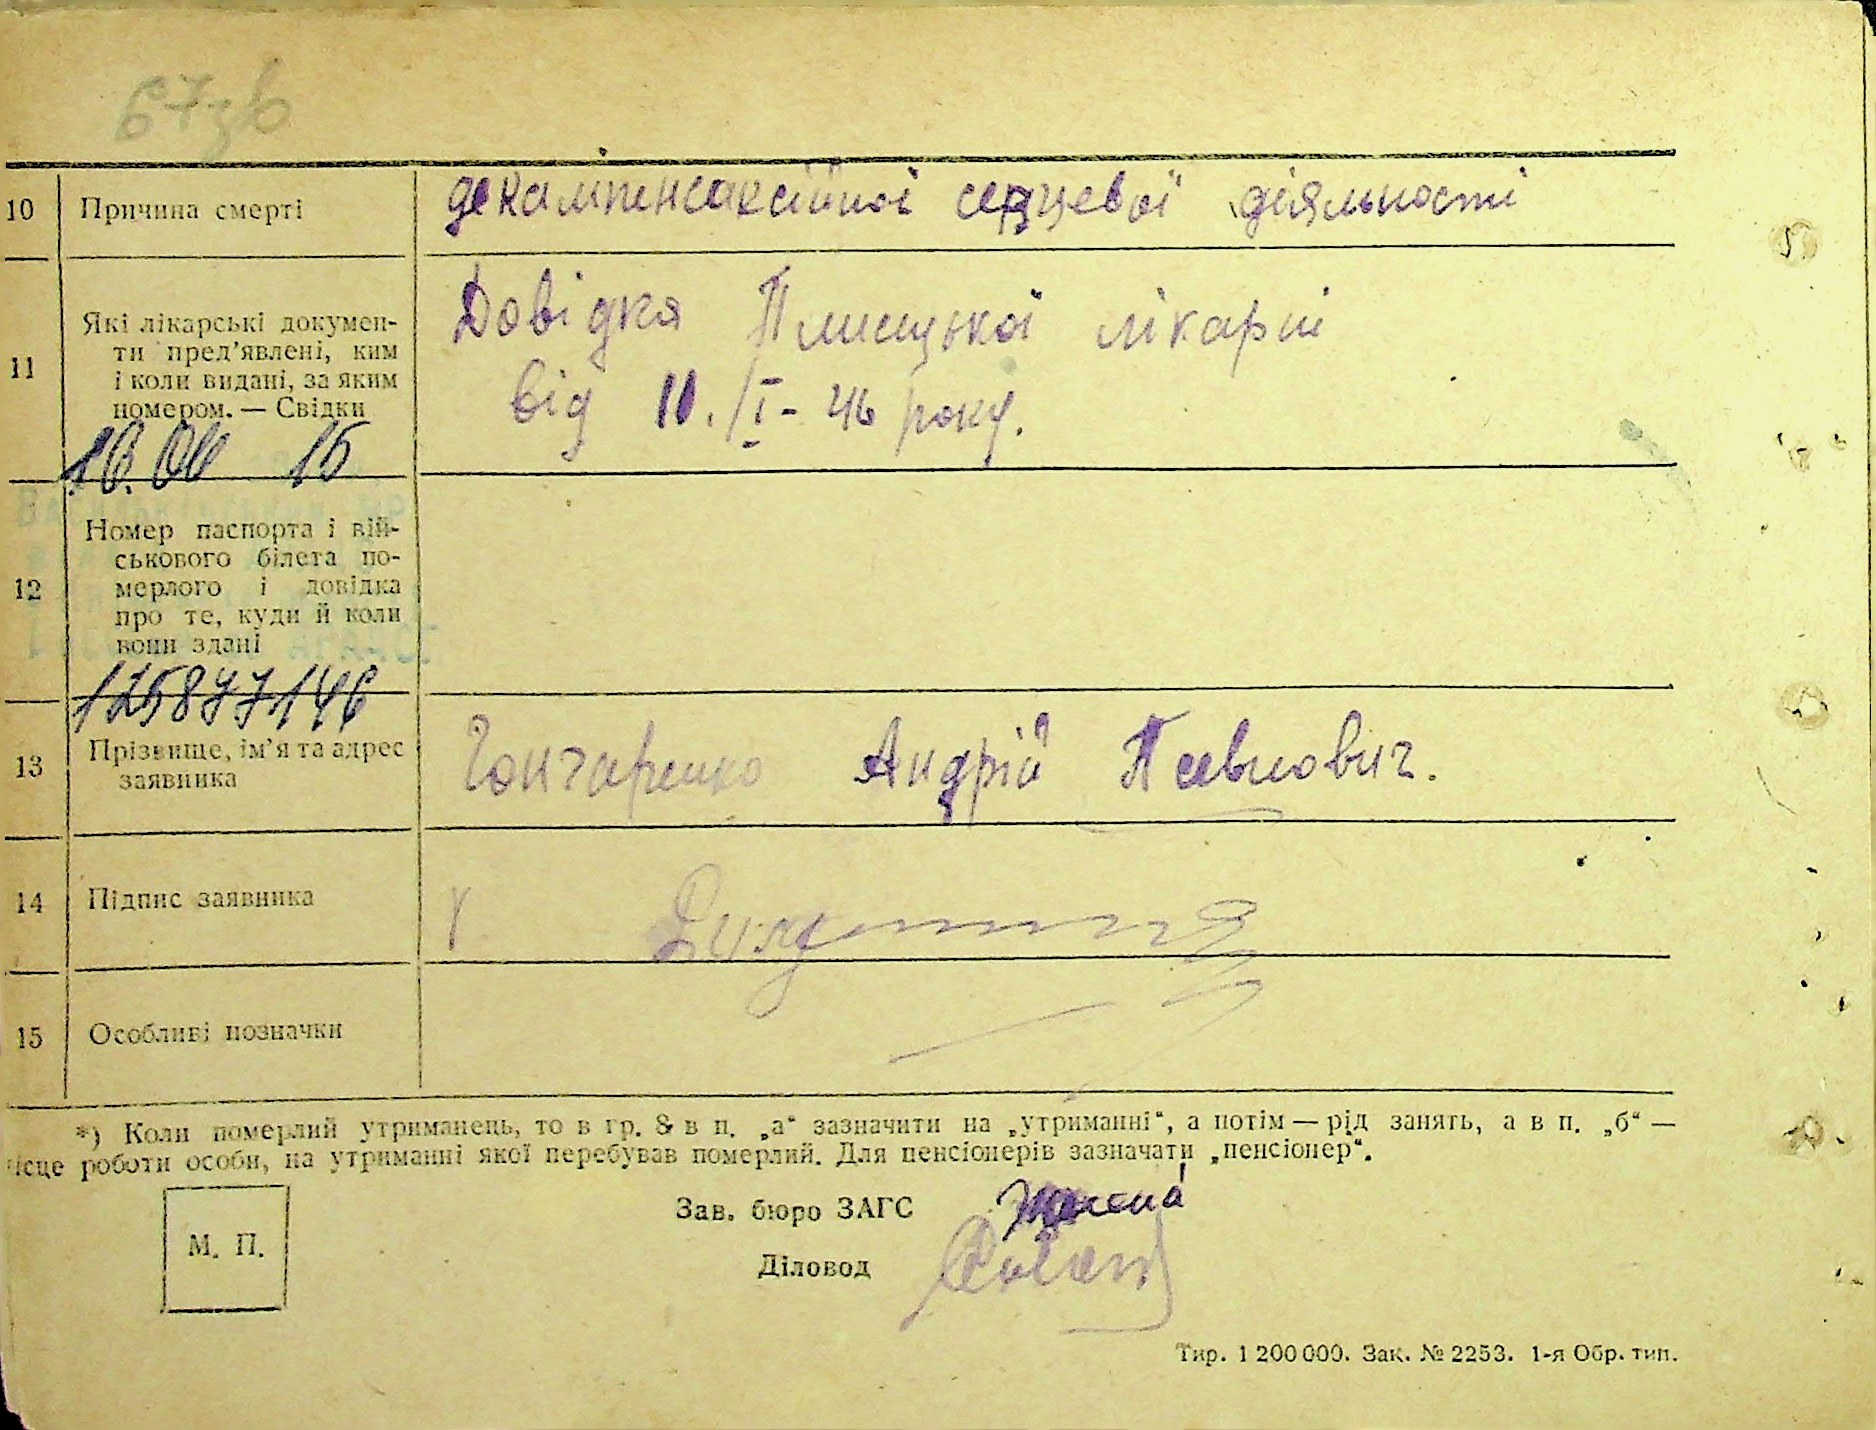 67зв
10 Причина смерті декампенсаксійної серцевої діяльності
11 Які лікарські докумен-
ти пред’явлені, ким
і коли видані, за яким
номером. — Свідки
Довідка Плиської лікарні
від 11./I - 46 року.
15
12 Номер паспорта і вій-
ськового білета по-
мерлого і довідка
про те, куди й коли
вони здані
125877146
13 Прізвище, ім’я та адрес
заявника
Гончаренко Андрій Павлович.
14 Підпис заявника
15 Особливі позначки
*) Коли померлий утриманець, то в гр. 8 в п. „а“ зазначити на „утриманні“, а потім — рід занять, а в п. „б“ —
ісце роботи особи, на утриманні якої перебував померлий. Для пенсіонерів зазначати „пенсіонер“.
Зав. бюро ЗАГС
М. П.
Діловод
Тир. 1 200 000. Зак. № 2253. 1-я Обр. тип.